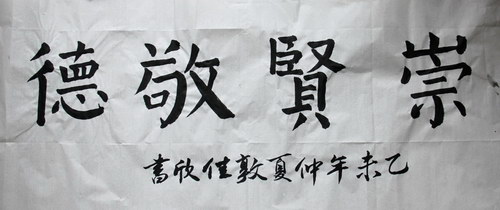 崇賢敬德
乙未年仲夏敦佳欣書